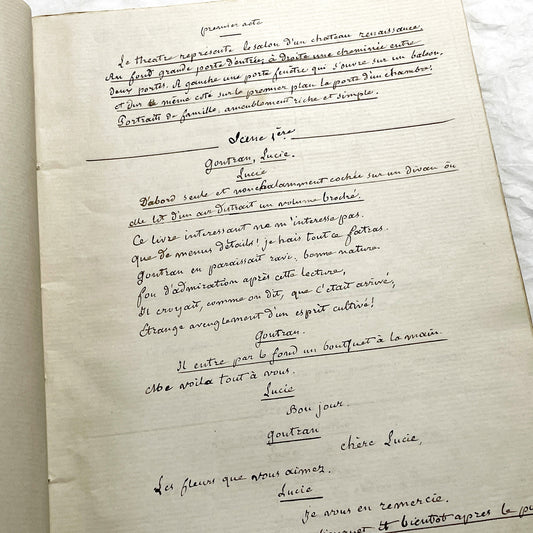 premier acte
Le théatre représente le salon d'un chateau renaissance.
Au fond grande porte d'entrée; à droite une cheminée entre
deux portes. A gauche une porte fenêtre qui s'ouvre sur un balcon,
et du même coté sur le premier plan la porte d'un chambre;
Portraits de famille, ameublement riche et simple.
Scene 1ère
Goutran, Lucie.
Lucie
D'abord seule et nonchalamment cochée sur un divan où
elle lit d'un air distrait un volume broché.
Ce livre intéressant ne m'interesse pas.
que de menus détails! je hais tout ce fatras.
Goutran en paraissait ravi: bonne nature.
fou d'admiration après cette lecture,
Il croyait, comme on dit, que c'était arrivé,
Etrange aveuglement d'un esprit cultivé!
Goutran.
Il entre par le fond un bouquet à la main.
Me voila tout à vous.
Lucie
Bon jour.
Goutran
chère Lucie,
Les fleurs que vous aimez.
Lucie
Je vous en remercie.
et bientot apres le